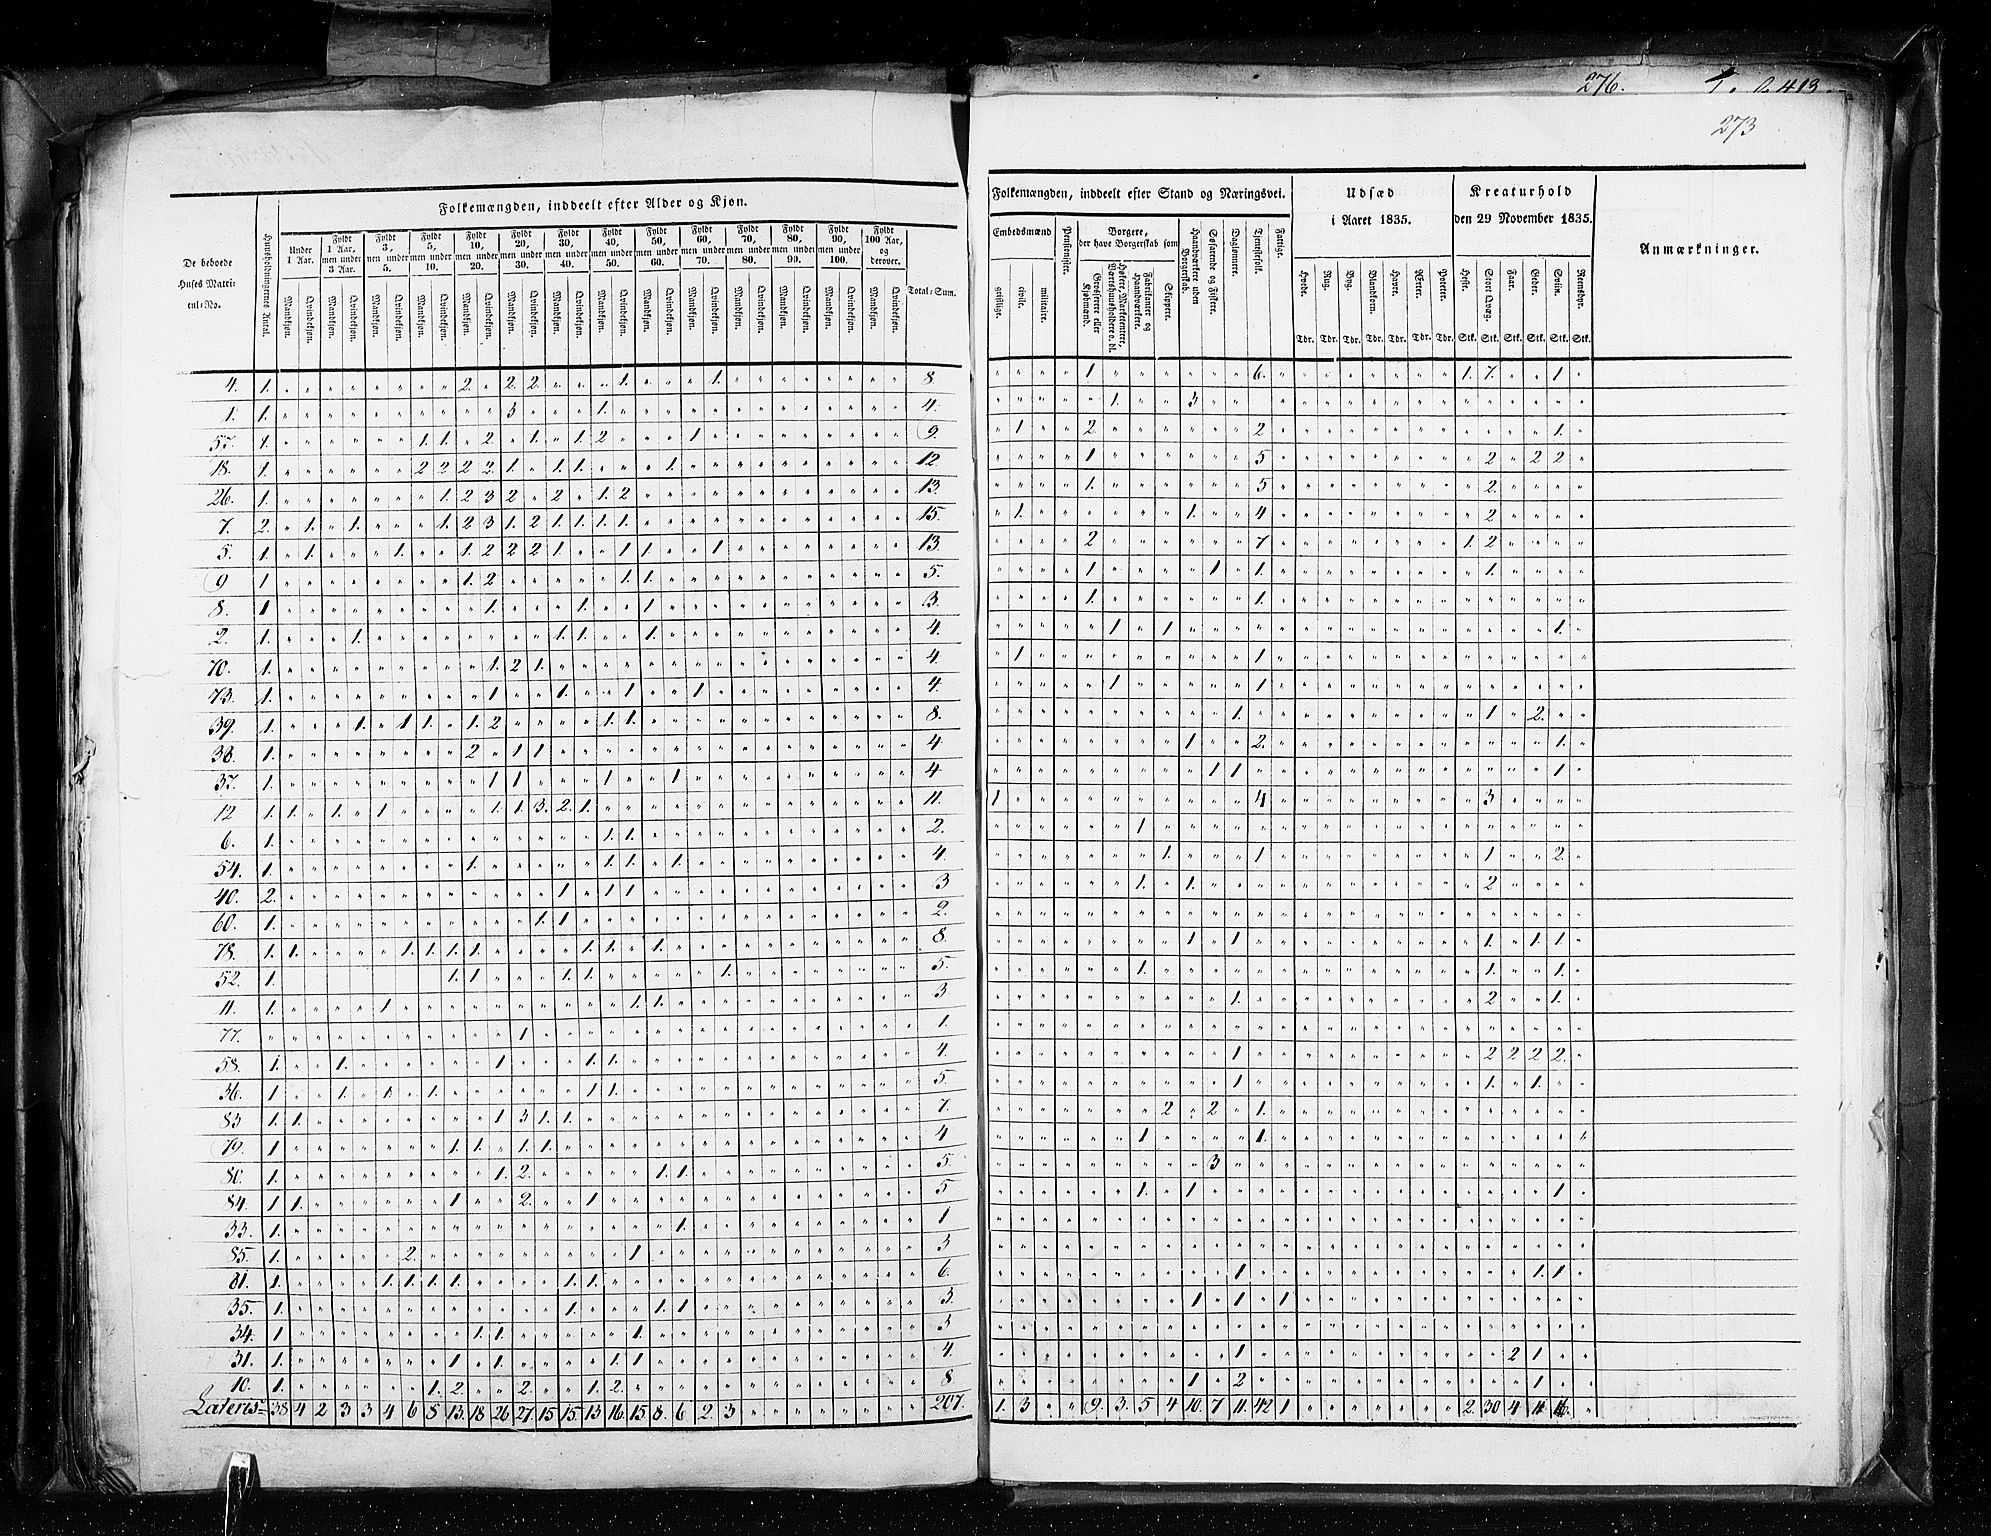 276.
273
Folkemængden, inddeelt efter Alder og Kjøn.
De beboede Huses Matricul-No.
Huusholdningernes Antal.
Under 1 Aar.
Fyldt 1 Aar, men under 3 Aar.
Fyldt 3, men under 5.
Fyldt 5, men under 10.
Fyldt 10, men under 20.
Fyldt 20, men under 30.
Fyldt 30, men under 40.
Fyldt 40, men under 50.
Fyldt 50, men under 60.
Fyldt 60, men under 70.
Fyldt 70, men under 80.
Fyldt 80, men under 90.
Fyldt 90, men under 100.
Fyldt 100 Aar, og derover.
Mandkjøn. Qvindekjøn.
Total-Sum.
Folkemængden, inddeelt efter Stand og Næringsvei.
Embedsmænd
geistlige. civile. militaire.
Pensionister.
Borgere, der have Borgerskab som
Grosserere eller Kjøbmænd.
Høkere, Marketentere, Værtshuusholdere o. dl.
Fabrikanter og Haandværkere.
Skippere.
Haandværkere uden Borgerskab.
Søfarende og Fiskere.
Daglønnere.
Tjenestefolk.
Fattige.
Udsæd i Aaret 1835.
Hvede. Rug. Byg. Blandkorn. Havre. Ærter. Poteter.
Tdr. Tdr. Tdr. Tdr. Tdr. Tdr. Tdr.
Kreaturhold den 29 November 1835.
Heste. Stort Qvæg. Faar. Geder. Sviin. Rensdyr.
Stk. Stk. Stk. Stk. Stk. Stk.
Anmærkninger.
4. 1. 2. 2. 2. 1. 1. 8. 1 6. 1. 7. 1
1. 1. 3 1. 4. 1. 3
57. 1. 1. 1. 2 1. 1. 2 1 9. 1 2 2 1.
18. 1. 2 2 2 2. 1. 1. 1. 1. 12. 1 5 2 2 2
26. 1. 1. 2 3 2 2 1. 2 13. 1. 5 2.
7. 2. 1. 1. 1. 2 3 1. 2 1. 1. 1. 1. 15. 1. 1. 4 2
5. 1. 1. 1. 1. 2 2 2 1. 1. 1. 1. 13. 2 7 1. 2
9 1 1. 2 1. 1. 5. 1 1 1. 1.
8. 1 1. 1. 1 3. 1. 1.
2. 1. 1. 1. 1. 1. 4. 1 1 1.
70. 1. 1. 2 1. 4. 1 1
73. 1. 1 1. 1 1 4. 1 1
39. 1. 1. 1 1. 1. 2 1. 1. 8. 1. 1 2.
38. 1. 2 1 1 4 1 2. 1.
37. 1. 1 1. 1 1. 4 1 1 1
12 1. 1. 1. 1 1. 1. 3. 2. 1. 11. 1 4 3
6. 1. 1. 1. 2. 1
54. 1. 1. 1. 1. 1. 4. 1. 1 1 2.
40. 2. 1 1. 1 3 1. 1. 2
60. 1. 1. 1 2.
78. 1. 1. 1. 1. 1. 1. 1. 1. 1. 8. 1 1 1. 1. 1.
52. 1. 1. 1. 1. 1. 1. 5. 1. 1. 1.
11. 1. 1 1. 1. 3 1. 2 1.
77. 1 1.
58. 1. 1. 1 1. 1. 4. 1 2 2 2 2.
36. 1 1. 1. 1. 1 1. 5. 1 1. 1.
83 1. 1. 1 3 1. 1. 7. 2 2 1.
79. 1 1. 1. 1. 1. 4 1 1.
80. 1. 1. 2. 1. 1. 5. 3
84. 1 1. 1 2. 1 5 1. 1 1
33. 1. 1. 1
85. 1. 2. 1 3
81. 1. 1. 1. 1. 1. 1. 1. 6. 1 1. 1
35. 1. 1. 1. 1 3. 1 1 1
34. 1 1. 1. 1 3
31. 1. 1 1. 1. 1 4. 1 2 1
10. 1. 1. 2. 2. 1. 2. 8 1 2 1
Lateris 38 4 2 3 3 4 6 8 13. 18 26 27. 15 15. 13 16. 15 8. 6 2. 3 207. 1. 3 9. 3. 5 4 10. 7 11. 42 1 2. 30 4 11 16.